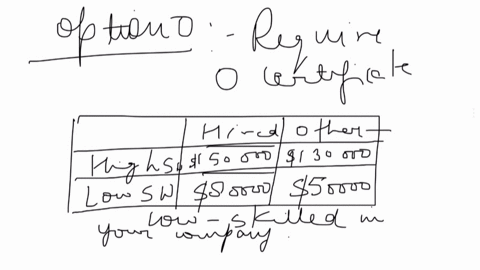 option 0 :- Require
0 certificate
Hired Other
High S $150 000 $130 000
Low SW $80000 $50000
Low-skilled in
your company.